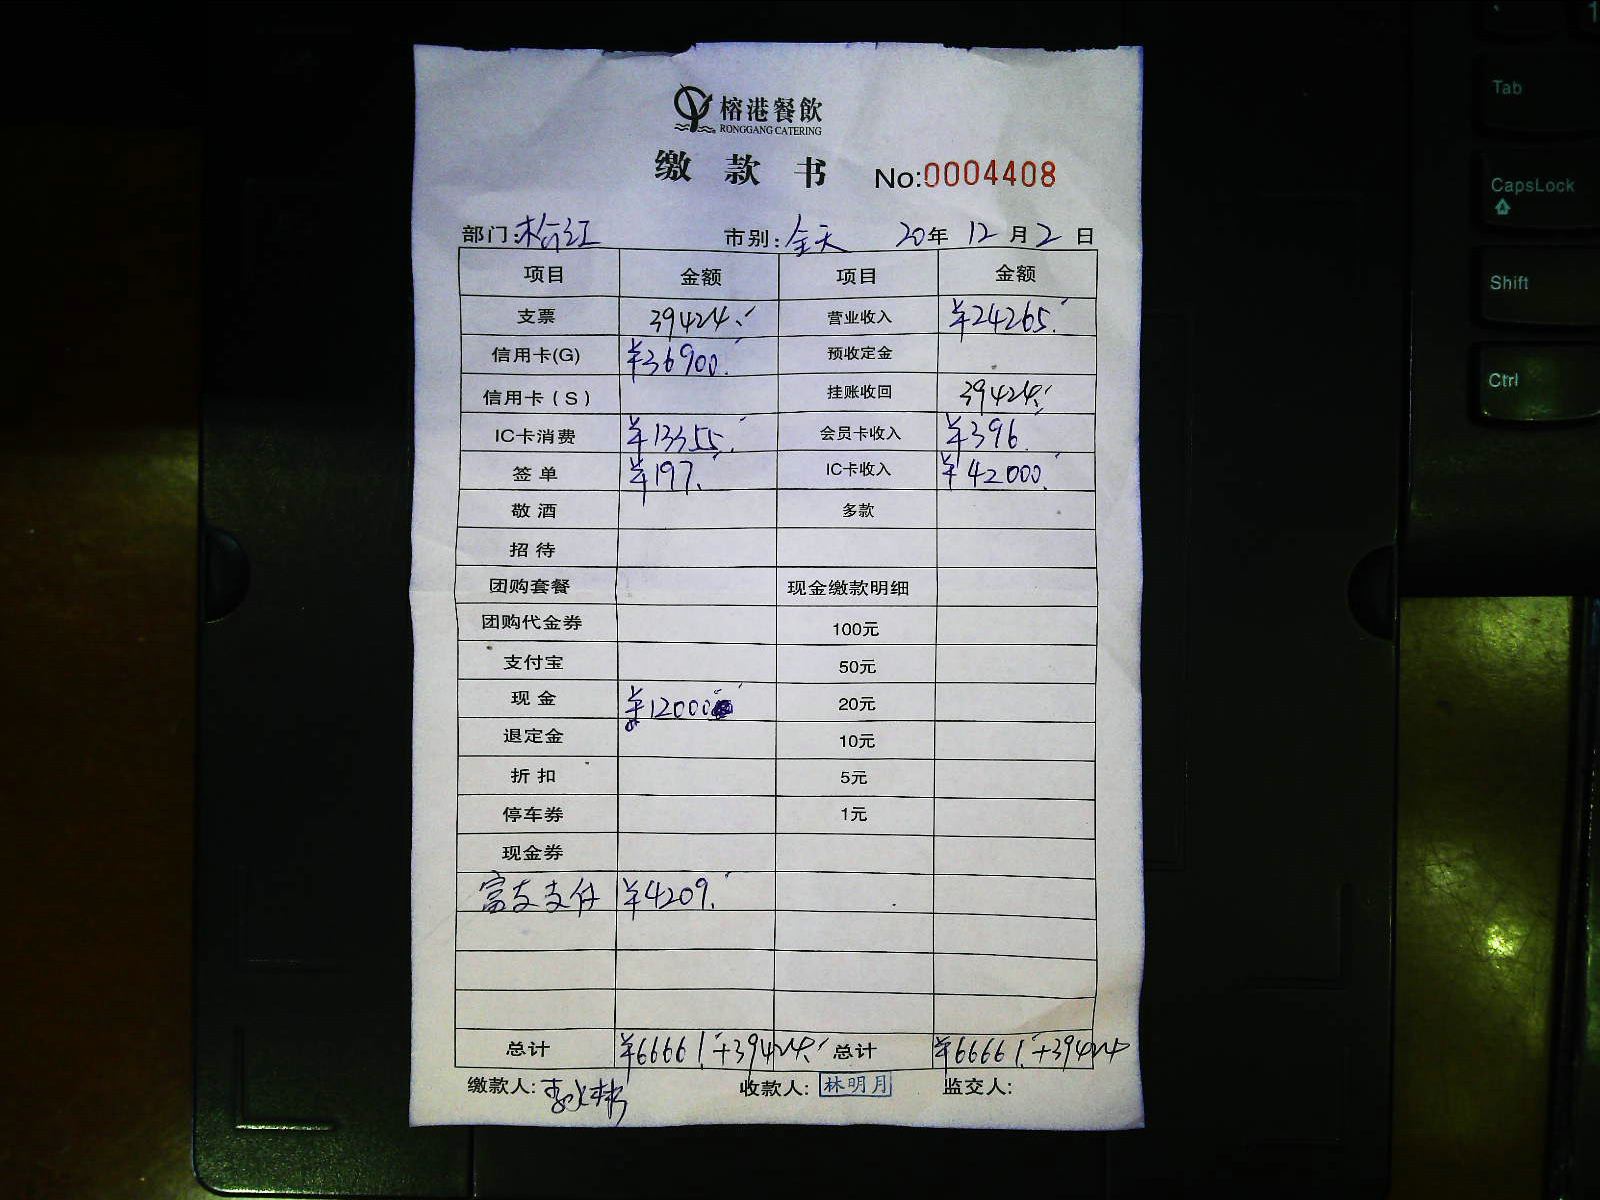 榕港餐飲
RONGGANG CATERING
缴款书 No:0004408
部门: 市别:全天 20年12月2日
项目 金额 项目 金额
支票 39424.- 营业收入 ¥24265.-
信用卡(G) ¥36900.- 预收定金
信用卡(S) 挂账收回 39424.-
IC卡消费 ¥13355.- 会员卡收入 ¥396.-
签单 ¥197.- IC卡收入 ¥42000.-
敬酒 多款
招待
团购套餐 现金缴款明细
团购代金券 100元
支付宝 50元
现金 ¥12000 20元
退定金 10元
折扣 5元
停车券 1元
现金券
富友支付 ¥4209.-
总计 ¥66661.-+39424.- 总计 ¥66661.-+39424
缴款人: 收款人: 林明月 监交人:
Tab
CapsLock
Shift
Ctrl